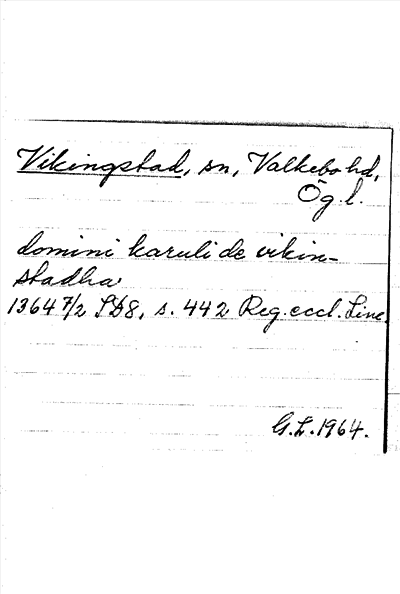 Vikingstad, sn, Valkebo hd,
Ög. l.
domini karuli de vikin-
stadha
1364 7/2 SD8, s. 442 Reg. eccl. Linc.
G.L. 1964.